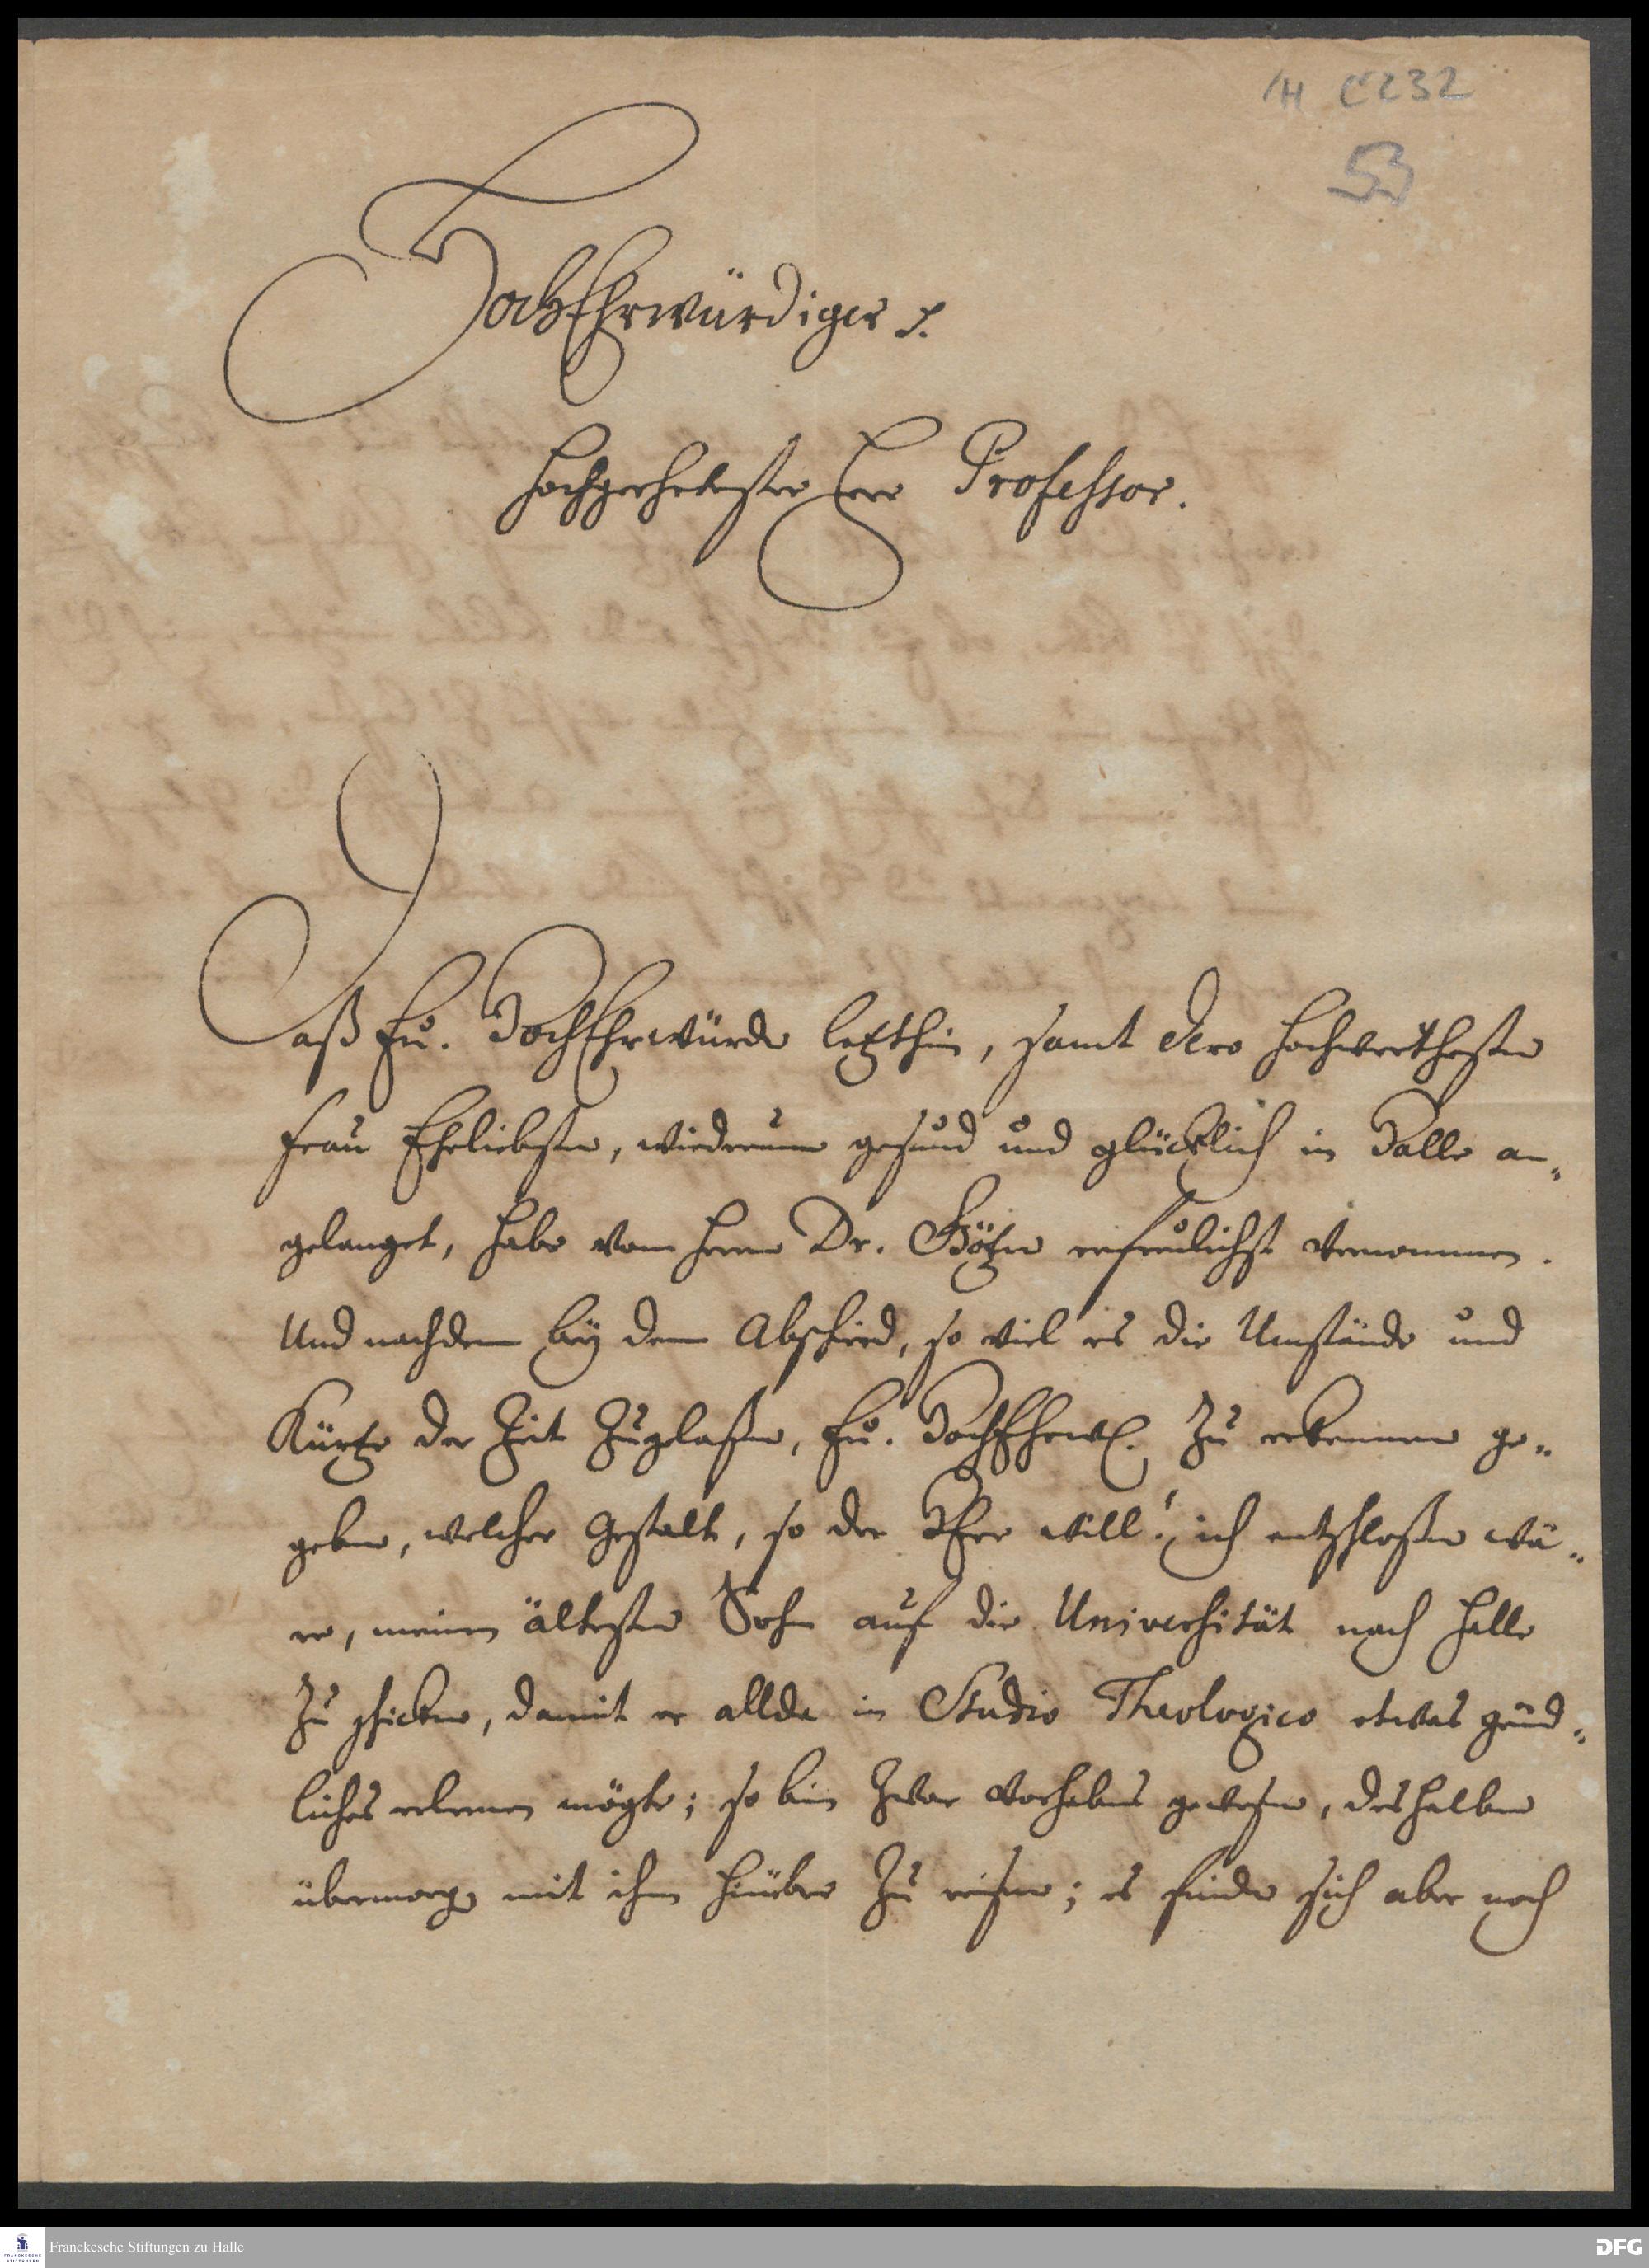 /H C 232
53
HochEhrwürdiger p.
Hochgeehrtester Herr Professor.
Daß Eu. HochEhrwürde letzthin, samt dero hochwerthesten
Frau Eheliebsten, wiederum gesund und glücklich in Halle an„
gelanget, habe vom Herrn Dr. Götze erfreulichst vernommen.
Und nachdem bey dem Abschied, so viel es die Umstände und
Kürtze der Zeit zugelaßen, Eu. HochEhrw. zu erkennen ge„
geben, welcher Gestalt, so der HErr will! ich entschloßen wä„
re, meinen ältesten Sohn auf die Universität nach Halle
zu schicken, damit er allda in Studio Theologico etwas gründ„
liches erlernen mögte; so bin zwar vorhabens gewesen, deshalben
übermorgen mit ihm hinüber zu reisen; es finden sich aber noch
Franckesche Stiftungen zu Halle
FRANCKESCHE STIFTUNGEN
DFG